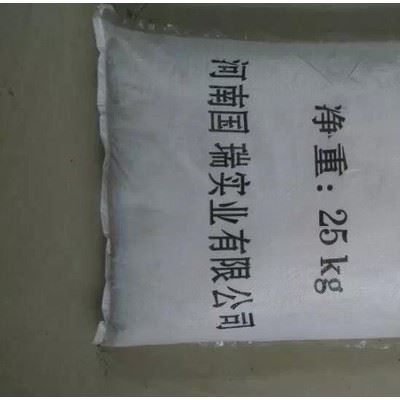 净重：25kg
河南国瑞实业有限公司